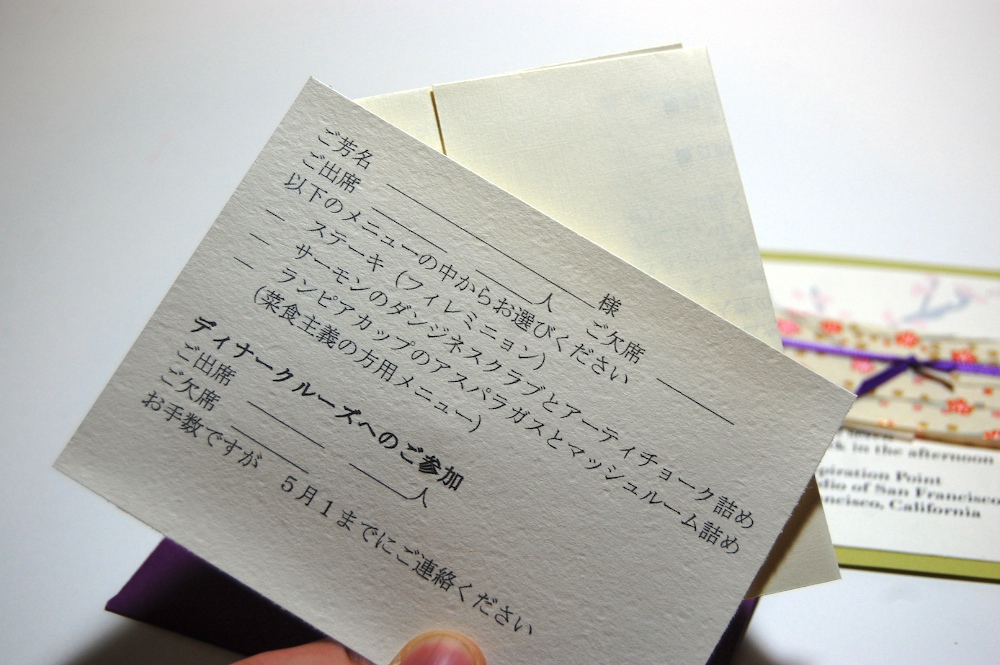 ご芳名 ____________ 様
ご出席 ____ ____人 ご欠席 ____
以下のメニューの中からお選びください
— ステーキ (フィレミニョン)
— サーモンのダンジネスクラブとアーティチョーク詰め
— ランピアカップのアスパラガスとマッシュルーム詰め
(菜食主義の方用メニュー)
ディナークルーズへのご参加
ご出席 ____ ____人
ご欠席 ____
お手数ですが 5月1までにご連絡ください
in the afternoon
Point
of San Francisco
California